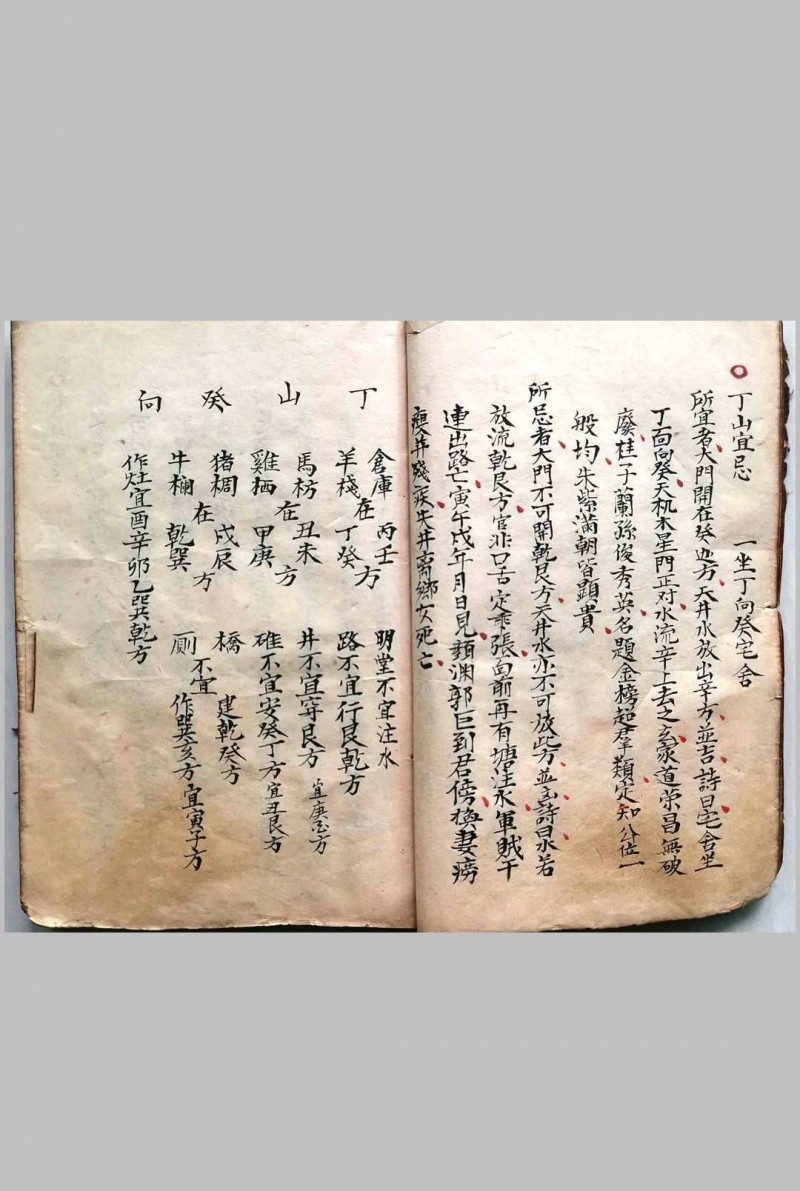 丁山宜忌 一坐丁向癸宅舍
所宜者大門開在癸迎方天井水放出辛方並吉詩曰宅舍坐
丁面向癸天机木星門正对水流辛上去之玄家道荣昌無破
廢桂子蘭孫俊秀英名題金榜超羣類定知公位一
般均朱紫滿朝皆顕貴
所忌者大門不可開乾艮方天井水亦不可放此方並玄詩曰水若
放流乾艮方官非口舌定乖張面前再有塘注水軍賊干
連出路亡寅午戌年月日見顔渊郭巨到君傍換妻痨
疾井殘疾失井离鄉女死亡
丁山癸向
倉庫在丙壬方
羊棧在丁癸方
馬枋在丑未方
雞栖在甲庚方
猪稠在戌辰方
牛欄在乾巽方
作灶宜酉辛卯乙巽乾方
明堂不宜注水
路不宜行艮乾方
井不宜穿艮方 宜庚方
碓不宜安癸丁方宜丑艮方
橋不宜建乾癸方
厠不宜作巽亥方宜寅子方